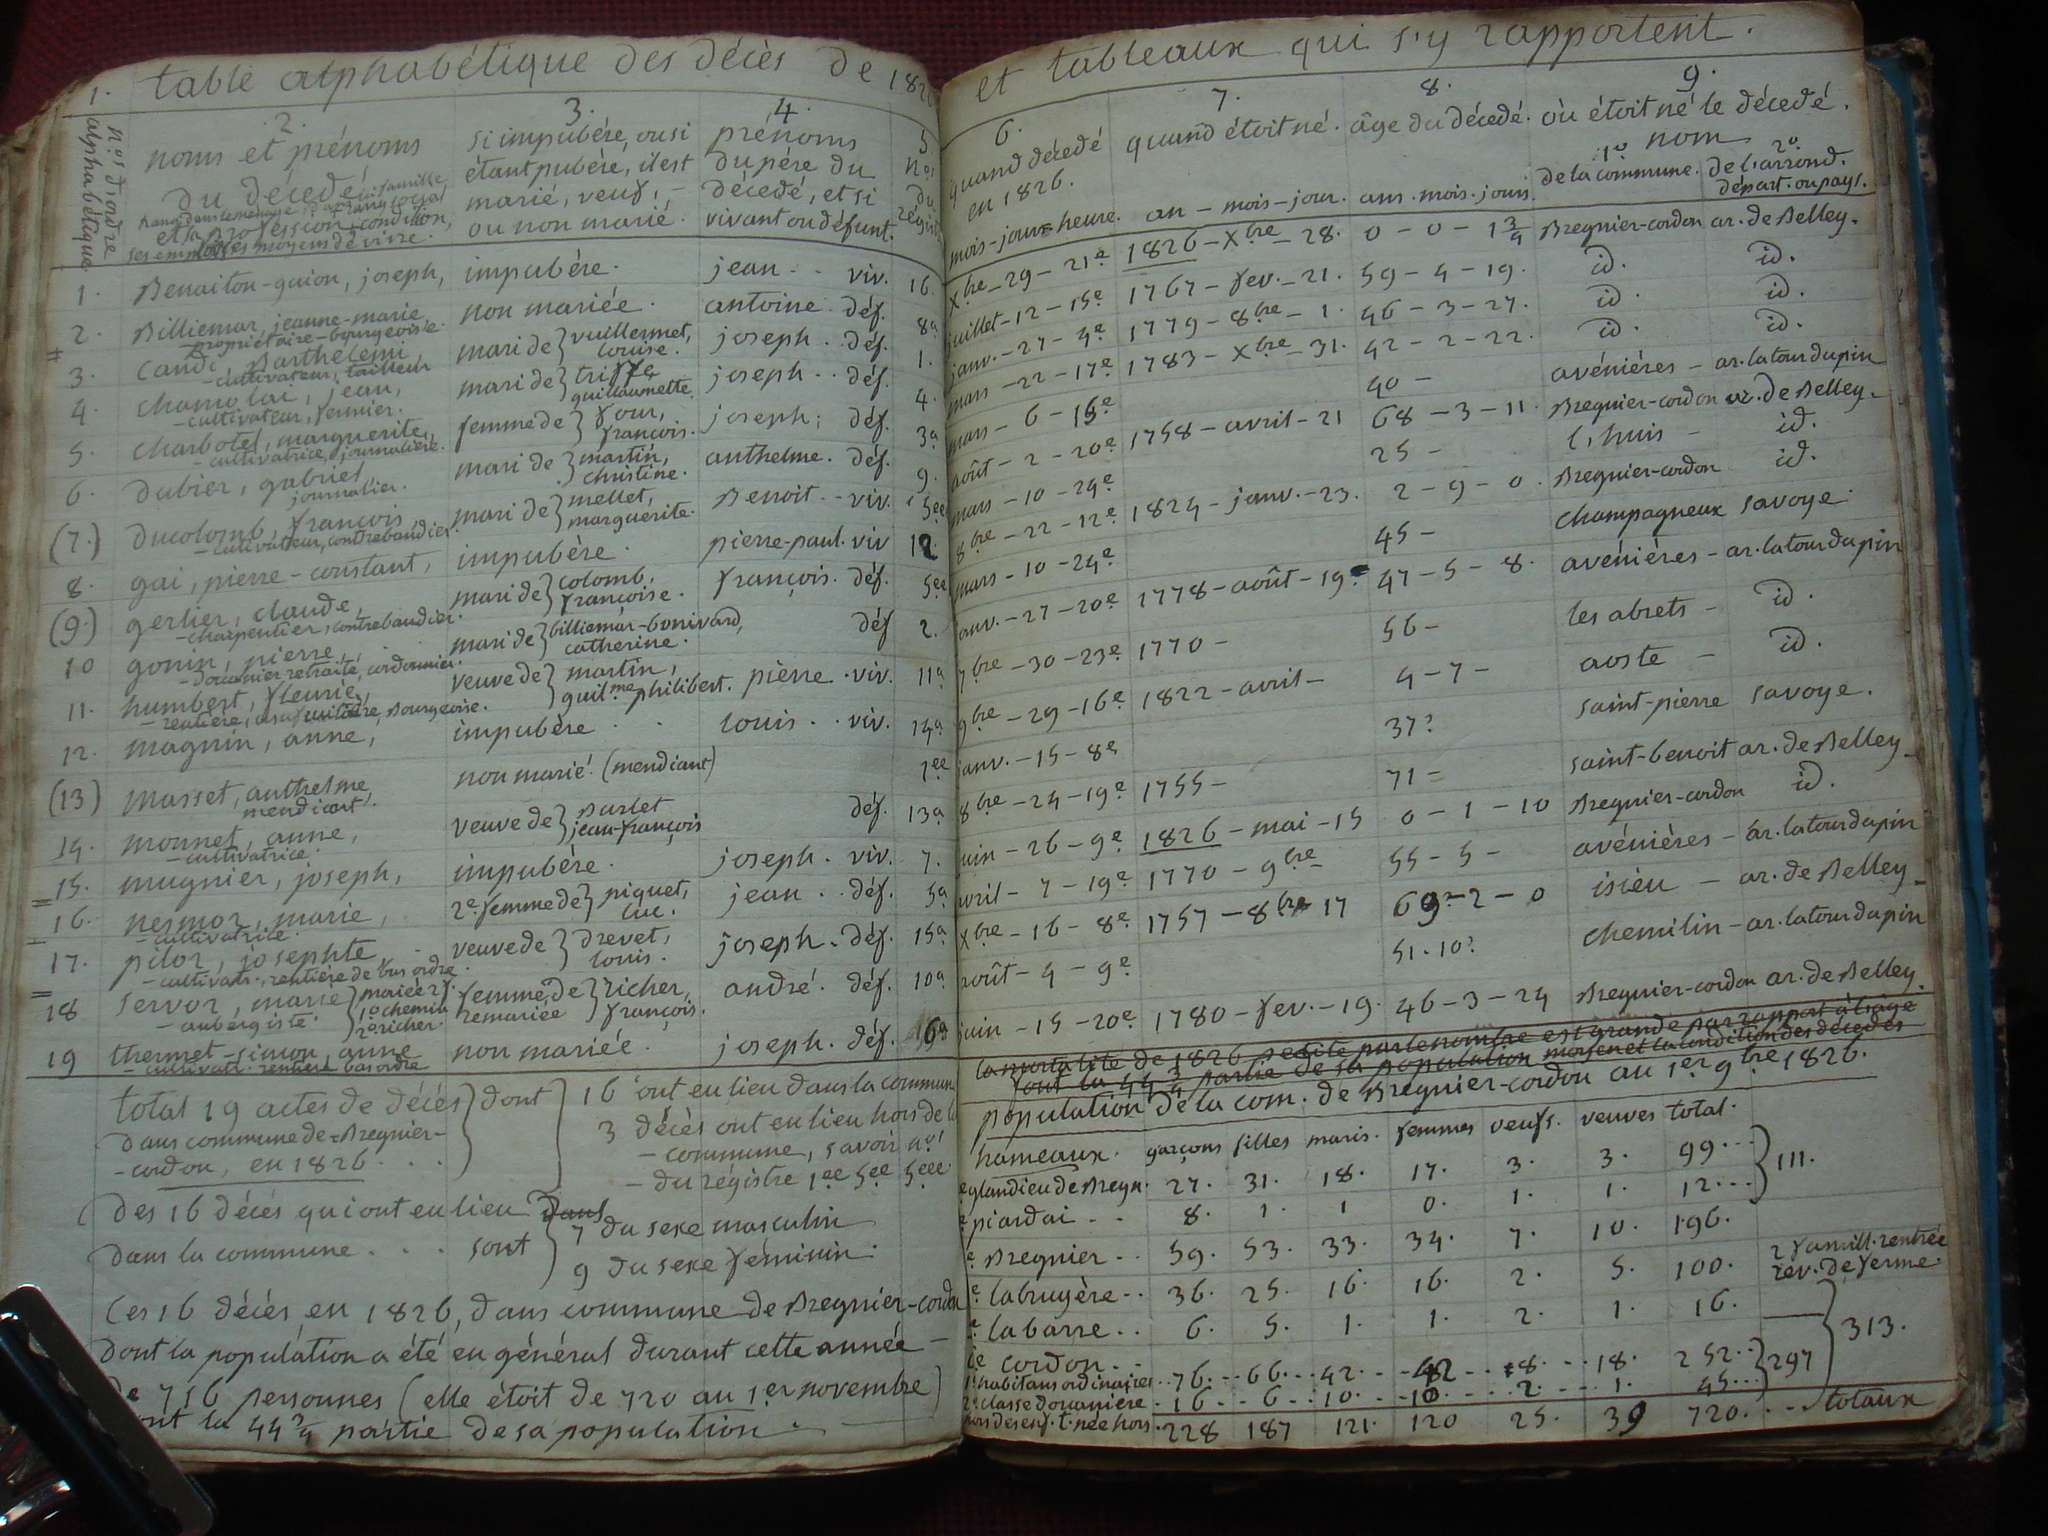 table alphabétique des décès de 1826
1.
n.os d'ordre alphabétique
2.
noms et prénoms
du décedé,
et sa profession, condition,
ses moyens de vivre.
3.
si impubère, ou si
étant pubère, il est
marié, veuf, -
ou non marié.
4.
prénoms
du père du
décedé, et si
vivant ou défunt.
5
n.os
du
registre
1. Benoiton-guion, joseph, impubère. jean . . viv. 16.
2. Billiemar, jeanne-marie non mariée. antoine. déf. 8a
- propriétaire - bourgeoisie.
3. Candi Barthelemi mari de } vuillermet, louise. joseph . . déf. 1.
- cultivateur, tailleur
4. Chamolai, jean, mari de } triffe guillaumette. joseph . . déf. 4.
- cultivateur, fermier.
5. Charbotel, marguerite, femme de } four, françois. joseph; déf. 3a
- cultivatrice, journalière.
6. dubier, gabriel mari de } martin, christine. anthelme. déf. 9.
journalier.
(7.) ducolomb, françois mari de } mellet, marguerite. Benoit . . viv. 5ee
- cultivateur, contrebandier
8. gai, pierre-constant, impubère. pierre-paul. viv 12.
(9.) gerlier, claude, mari de } colomb, françoise. françois. déf. 5ee
- charpentier, contrebandier.
10 gonin, pierre, mari de } billiemar-bonivard, catherine. déf 2.
- douanier retraité, cordonnier.
11. humbert, fleurie, veuve de } martin, guil.me philibert. pierre . viv. 11a
12. magnin, anne, impubère . . louis . . viv. 14a
(13) masset, anthelme, non marié. (mendiant) 1ee
mendiant.
14. monnet, anne, veuve de } Burlet jean-françois déf. 13a
- cultivatrice.
15. mugnier, joseph, impubère. joseph. viv. 7.
16. nermoz, marie, 2e femme de } piquet, luc. jean . . déf. 5a
- cultivatrice.
17. pitor, josephte veuve de } drevet, louis. joseph. déf. 15a
- cultivatr., rentière de bas ordre.
18 Servoz, marie } mariée 2 f. 1o chemin 2o richer. femme de remariée } richer, françois. andré. déf. 10a
- aubergiste.
19 thermet-simon, anne non mariée. joseph. déf. 6a
- cultivatr. rentière bas ordre
total 19 actes de décès } dont } 16 ont eu lieu dans la commune
dans commune de Bregnier-
-cordon, en 1826 . . .
3 décès ont eu lieu hors de la
- commune, savoir n.os
- du régistre 1ee 5ee 5eee.
des 16 décés qui ont eu lieu dans
dans la commune . . . sont
7 du sexe masculin
9 du sexe féminin.
Ces 16 décés en 1826, dans commune de Bregnier-cordon
dont la population a été en général durant cette année -
de 716 personnes (elle étoit de 720 au 1.er novembre)
sont la 44 3/4 partie de sa population.
et tableaux qui s'y rapportent.
6.
quand décedé
en 1826.
mois - jour - heure.
7.
quand étoit né.
an - mois - jour.
8.
âge du décedé.
ans. mois. jours.
9.
où étoit né le décedé.
nom
1o de la commune.
2o de l'arrond. départ. ou pays.
Xbre - 29 - 21e 1826 - Xbre - 28. 0 - 0 - 1 3/4 Bregnier-cordon ar. de Belley.
juillet - 12 - 15e 1767 - fev. - 21. 59 - 4 - 19. id. id.
janv. - 27 - 4e 1779 - 8bre - 1. 46 - 3 - 27. id. id.
mars - 22 - 17e 1783 - Xbre - 31. 42 - 2 - 22. id. id.
mars - 6 - 15e 40 - avénières - ar. latourdupin
août - 2 - 20e 1758 - avril - 21 68 - 3 - 11. Bregnier-cordon ar. de Belley.
mars - 10 - 24e 25 - l'huis - id.
8bre - 22 - 12e 1824 - janv. - 23. 2 - 9 - 0. Bregnier-cordon id.
mars - 10 - 24e 45 - champagneux savoye.
janv. - 27 - 20e 1778 - août - 19. 47 - 5 - 8. avénières - ar. latourdupin
7bre - 30 - 23e 1770 - 56 - les abrets - id.
9bre - 29 - 16e 1822 - avril - 4 - 7 - aoste - id.
janv. - 15 - 8e 37? saint-pierre savoye.
8bre - 24 - 19e 1755 - 71 - saint-benoit ar. de Belley
juin - 26 - 9e 1826 - mai - 15 0 - 1 - 10 Bregnier-cordon id.
avril - 7 - 19e 1770 - 9bre - 55 - 5 - avénières - ar. latourdupin
Xbre - 16 - 8e 1757 - 8bre 17 69 - 2 - 0 isieu - ar. de Belley
août - 4 - 9e 51. 10? chemilin - ar. latourdupin
juin - 15 - 20e 1780 - fev. - 19. 46 - 3 - 24 Bregnier-cordon ar. de Belley.
la mortalité de 1826 petite par le nombre est grande par rapport à l'âge
sont la 44 3/4 partie de sa population moyen et la condition des décedés
population de la com. de Bregnier-cordon au 1.er 9bre 1826.
hameaux. garçons filles maris. femmes veufs. veuves total.
glandieu de Bregn. 27. 31. 18. 17. 3. 3. 99 . . . } 111.
piardai . . 8. 1. 1 0. 1. 1. 12 . . .
Bregnier . . 59. 53. 33. 34. 7. 10. 196.
labruyère . . 36. 25. 16. 16. 2. 5. 100. 2 famill. rentrée rev. de ferme.
la barre . . 6. 5. 1. 1. 2. 1. 16. } 313.
Cordon . .
1o habitans ordinaires . . 76 . . 66 . . 42 . . 42 . . 8 . . 18. 252 . . } 297
2o classe douanière . 16 . . 6 . . 10 . . 10 . . 2 . . 1. 45 . . .
228 187 121. 120 25. 39 720. . . . totaux